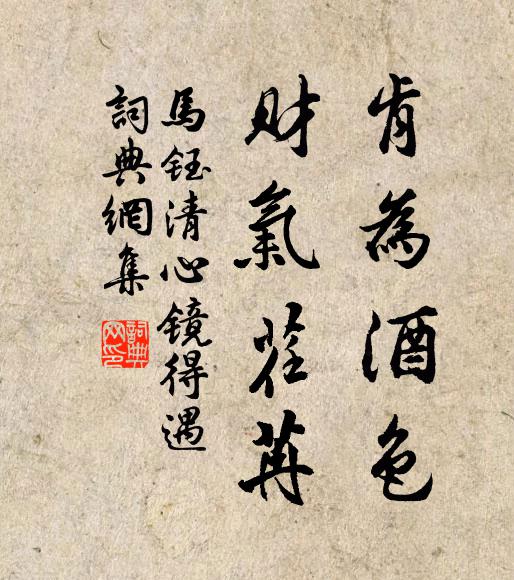 肯為酒色
財氣荏苒
馬鈺清心鏡得遇
詞典網集
詞典網印